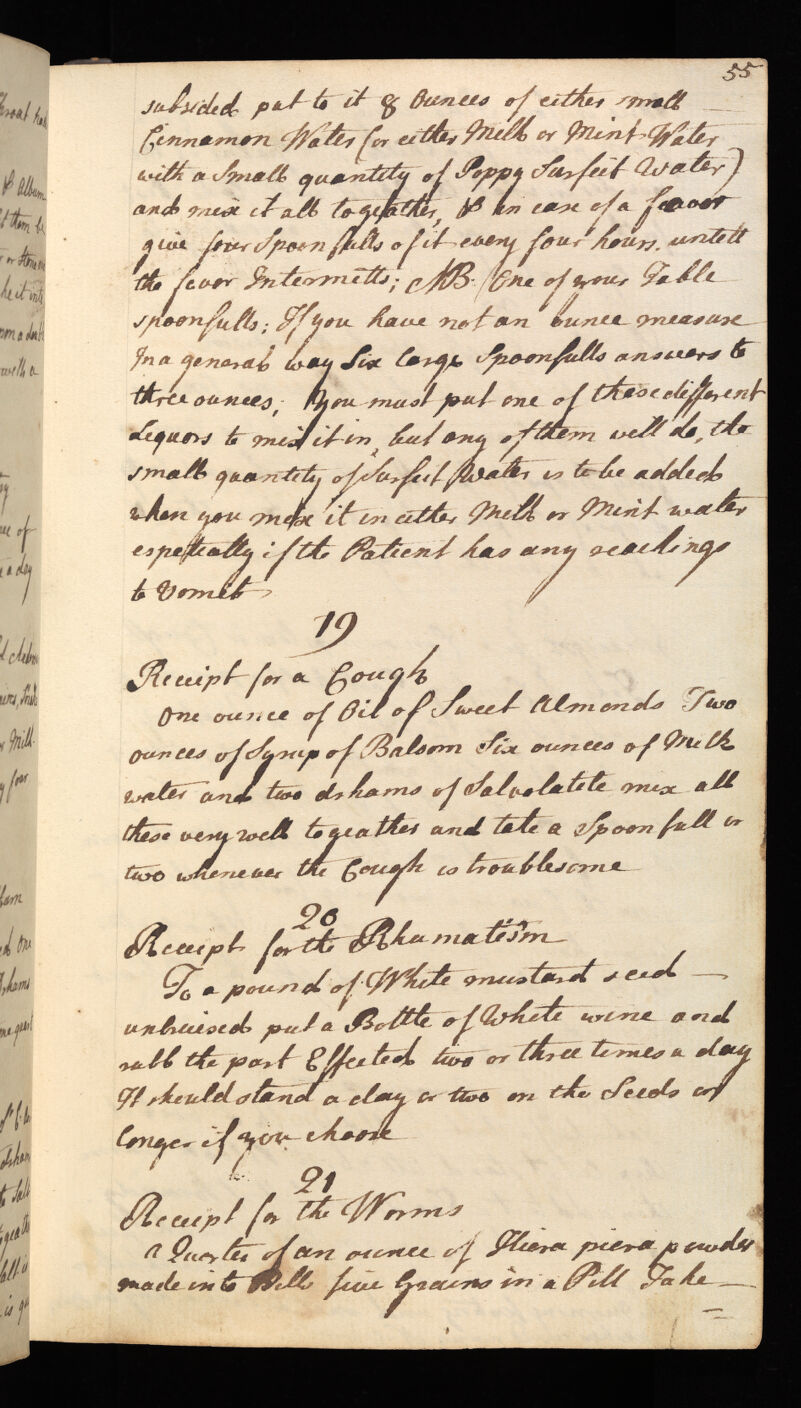 55
subsided put to it 8 Ounces of either small
Cinnamon Water (or either Milk or Mint Water
with a Small quantity of Poppy Surfeit Water)
and mix it all togeather, & in case of a feavor
give four Spoonfulls of it every four hours. untill
the fevor Intermitts; NB. One of your Table
spoonfulls; If you have not an ounce measure
In a general way Six large Spoonfulls answers to
three ounces; You must put one of these different
Lequors to mix it in, but any of them will do, the
small quantity of Surfeit Water is to be added
when you mix it in either Milk or Mint water
espetially if the Patient has any reachings
to Vomit
19
Receipt for a Cough
One ounce of Oil of Sweet Almonds Two
ounces of Syrup of Balsom Six ounces of Milk
water and two drhams of Salvolatile mix all
these very well togeather and take a Spoonfull or
two whenever the Cough is troublesome
20
Receipt for the Rhumatism
To a pound of White mustard seed
unbruised put a Bottle of White wine and
rubb the part Effected two or three times a day
It should stand a day or two on the Seeds or
longer if you choose
21
Receipt for the Worms
a Quarter of an ounce of Hiera piera powder
made into Pills five Grains in a Pill Take